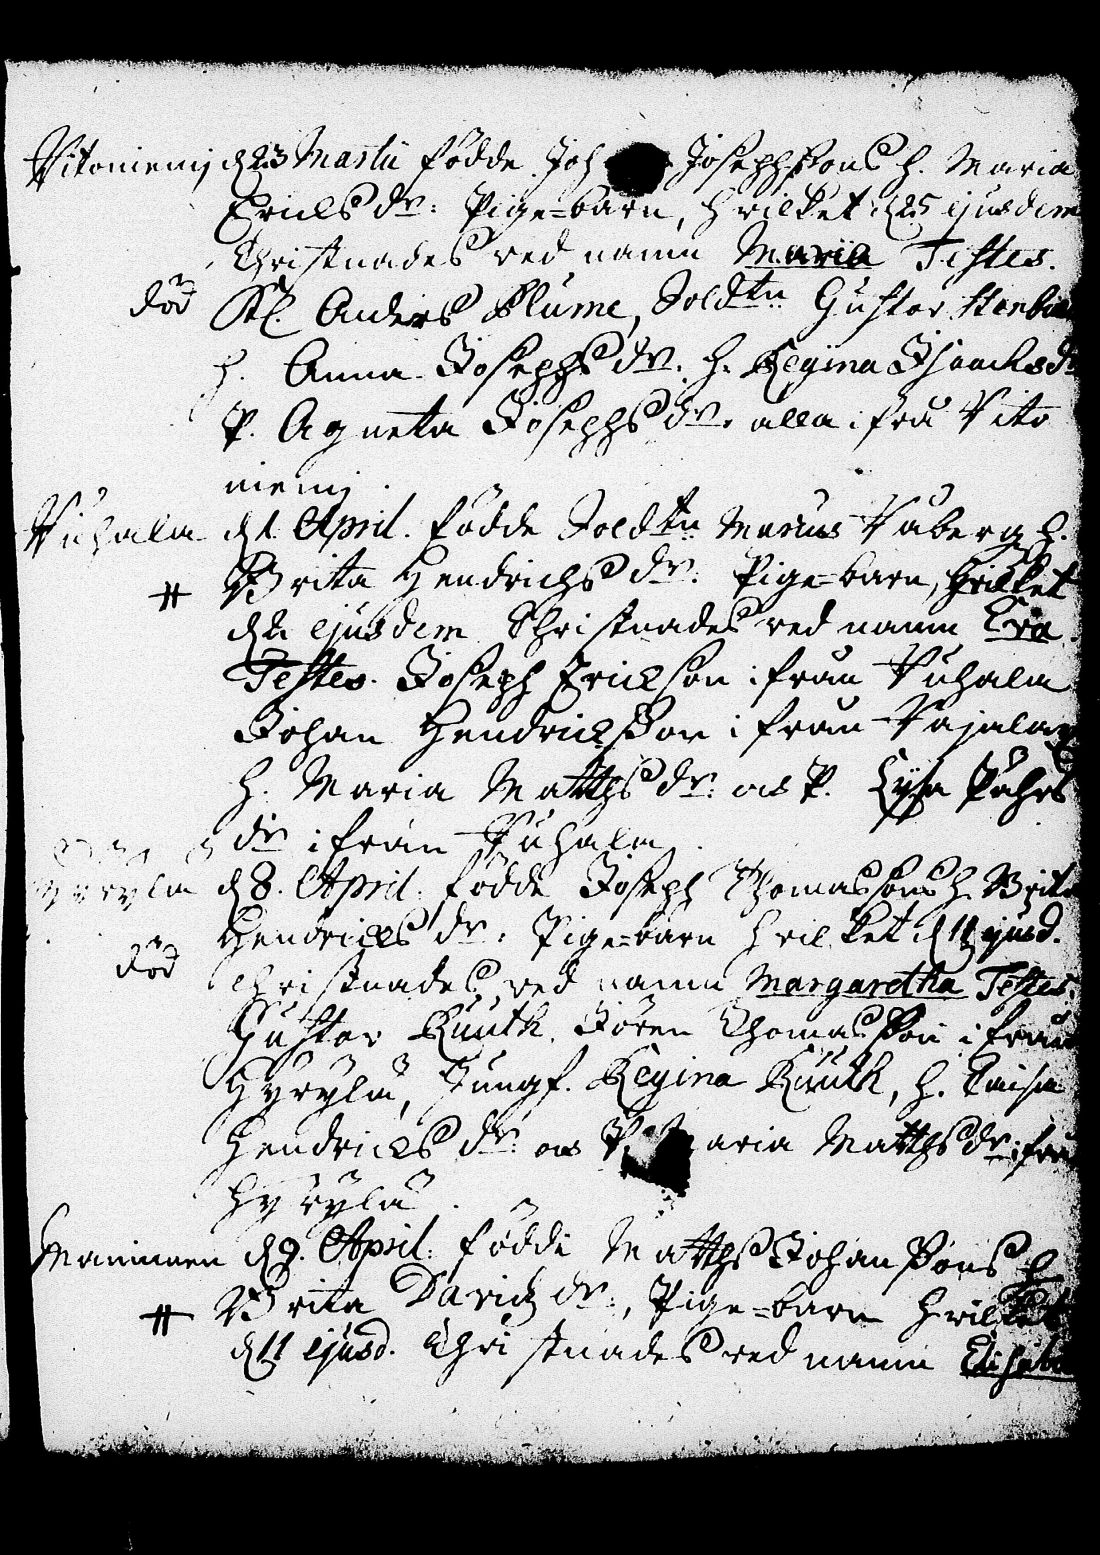 Vitoniemj d 23 Martii födde Joh Josephssons h. Maria
Ericks dr: Pige=barn, hvilket d 25 ejusdem
Christnades ved namn Maria Testes.
död
Anders Blume, Soldtn Gustav Stenb
h. Anna Josephs dr. h. Regina Isaacks d
P. Agneta Josephs dr. alla ifrå Vito
niemj.
Vuhala d 1. April. födde Soldtn Marcus Vaberg h.
# Brita Hendrichs dr: Pige=barn, hvilket
d 2 ejusdem Christnades ved namn Eva
Testes. Joseph Erickson ifrån Vuhala
Johan Hendricksson ifrån Vajala
h. Maria Matths dr: P. Lysa Påhls
dr ifrån Vuhala.
d 8. April. födde Joseph Thomassons h. Brita
Hendricks dr. Pige=barn hvilket d 11 ejusd.
död
Christnades ved namn Margaretha Testes.
Gustav Ruuth, Jören Thomasson ifrån
Hyrylä, Jungf. Regina Ruuth, h. Caisa
Hendricks dr: P. aria Matths dr: ifrå
Hyrylä.
Maninnen d 9. April. födde Matths Johanssons h
# Brita Davidz dr:, Pige=barn hvilket
d 11 ejusd. Christnades ved namn Elisab